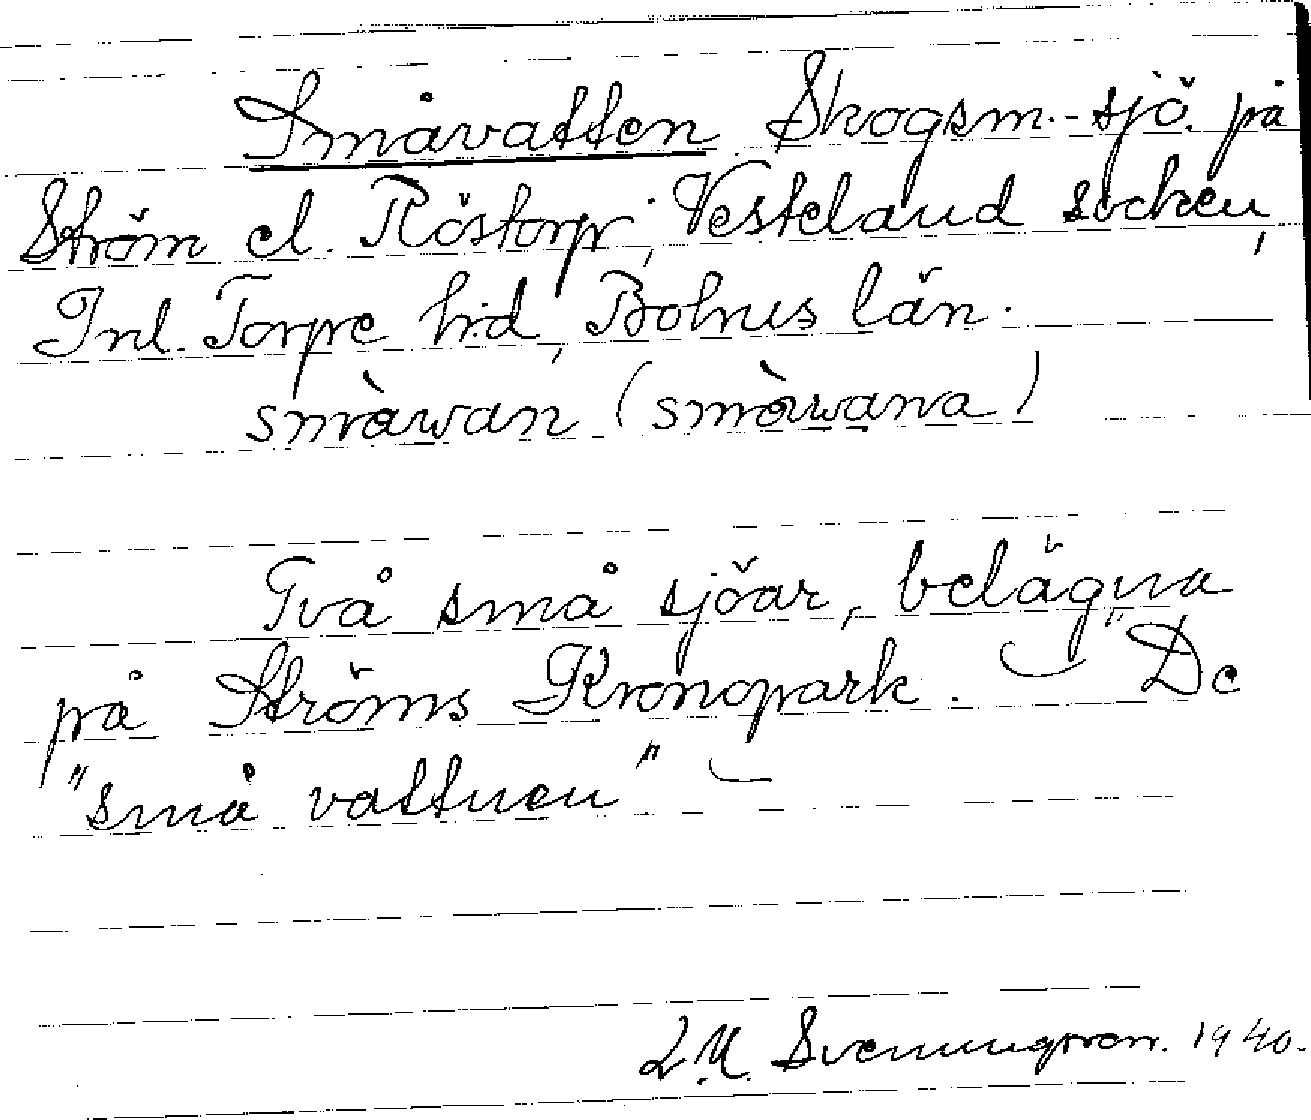 Småvatten Skogsm.-sjö. på
Ström el. Röstorp, Vesteland socken,
Inl. Torpe h:d, Bohus län.
smàwan (smòwana)
Två små sjöar, belägna
på Ströms Kronopark. "De
"små vattnen"
L.M. Svenungsson. 1940.